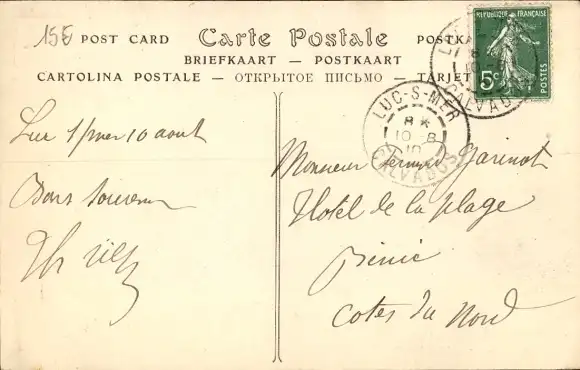 15E
POST CARD Carte Postale POSTKA
BRIEFKAART — POSTKAART
CARTOLINA POSTALE — ОТКРЫТОЕ ПИСЬМО — TARJET
REPUBLIQUE FRANÇAISE
5c
POSTES
LUC-S-MER
8 *
10 - 8
10
CALVADOS
CALVADOS
Luc s/mer 10 aout
Bons Souvenirs
Monsieur Bernard Garinot
Hotel de la plage
Binic
Cotes du Nord